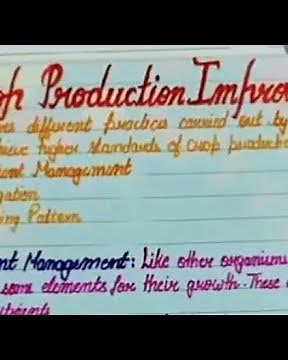 op Production Improv
ves different practices carried out by
hieve higher standards of crop productio
ent Management
gation
ing Pattern
ent Management: Like other organisms
some elements for their growth. These
utrients